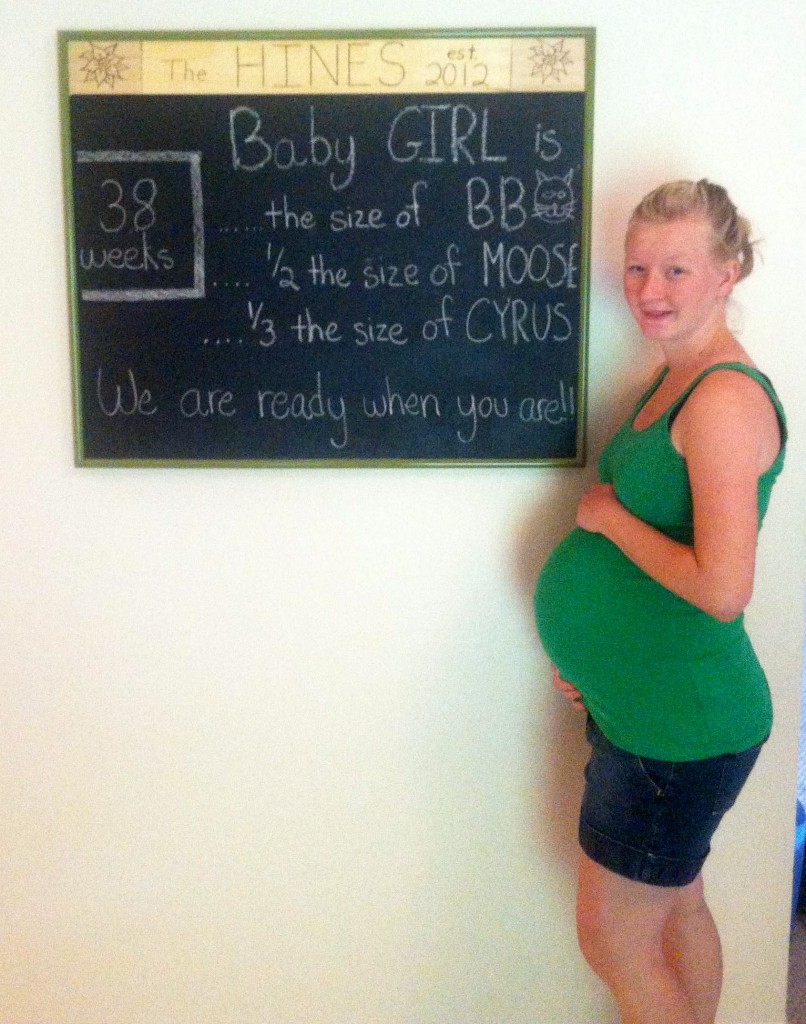 The HINES est. 2012
Baby GIRL is
38 weeks
......the size of BB
.... 1/2 the size of MOOSE
....1/3 the size of CYRUS
We are ready when you are!!